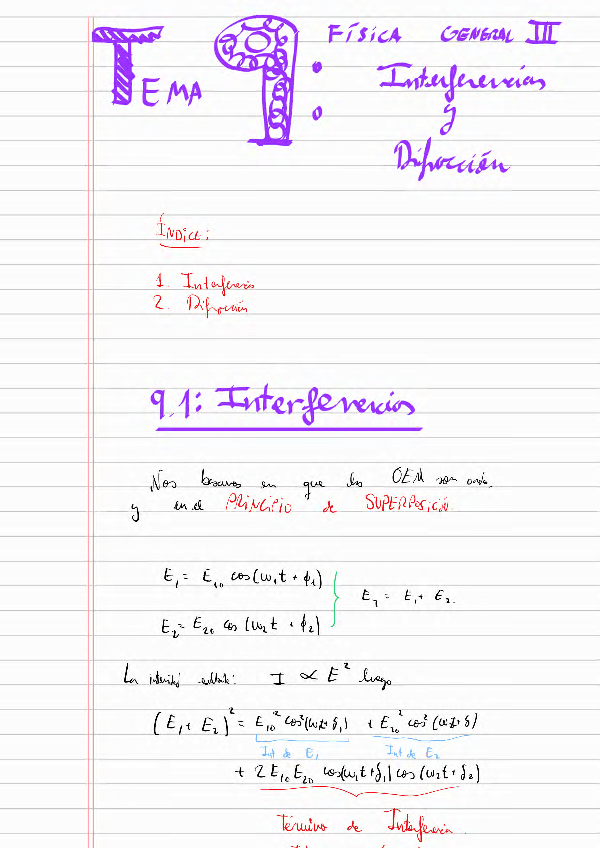 TEMA 9: FÍSICA GENERAL III
Interferencias
y
Difracción
ÍNDICE:
1. Interferencia
2. Difracción
9.1: Interferencias
Nos basamos en que las OEM son onda.
y en el PRINCIPIO de SUPERPOSICIÓN
E₁ = E₁₀ cos(ω₁t + ϕ₁)
E_T = E₁ + E₂.
E₂ = E₂₀ cos(ω₂t + ϕ₂)
La I ∝ E² luego
(E₁ + E₂)² = E₁₀² cos²(ωt+δ₁) + E₂₀² cos²(ωt+δ)
Int de E₁ Int de E₂
+ 2E₁₀E₂₀ cos(ω₁t+δ₁) cos(ω₂t+δ₂)
Término de Interferencia